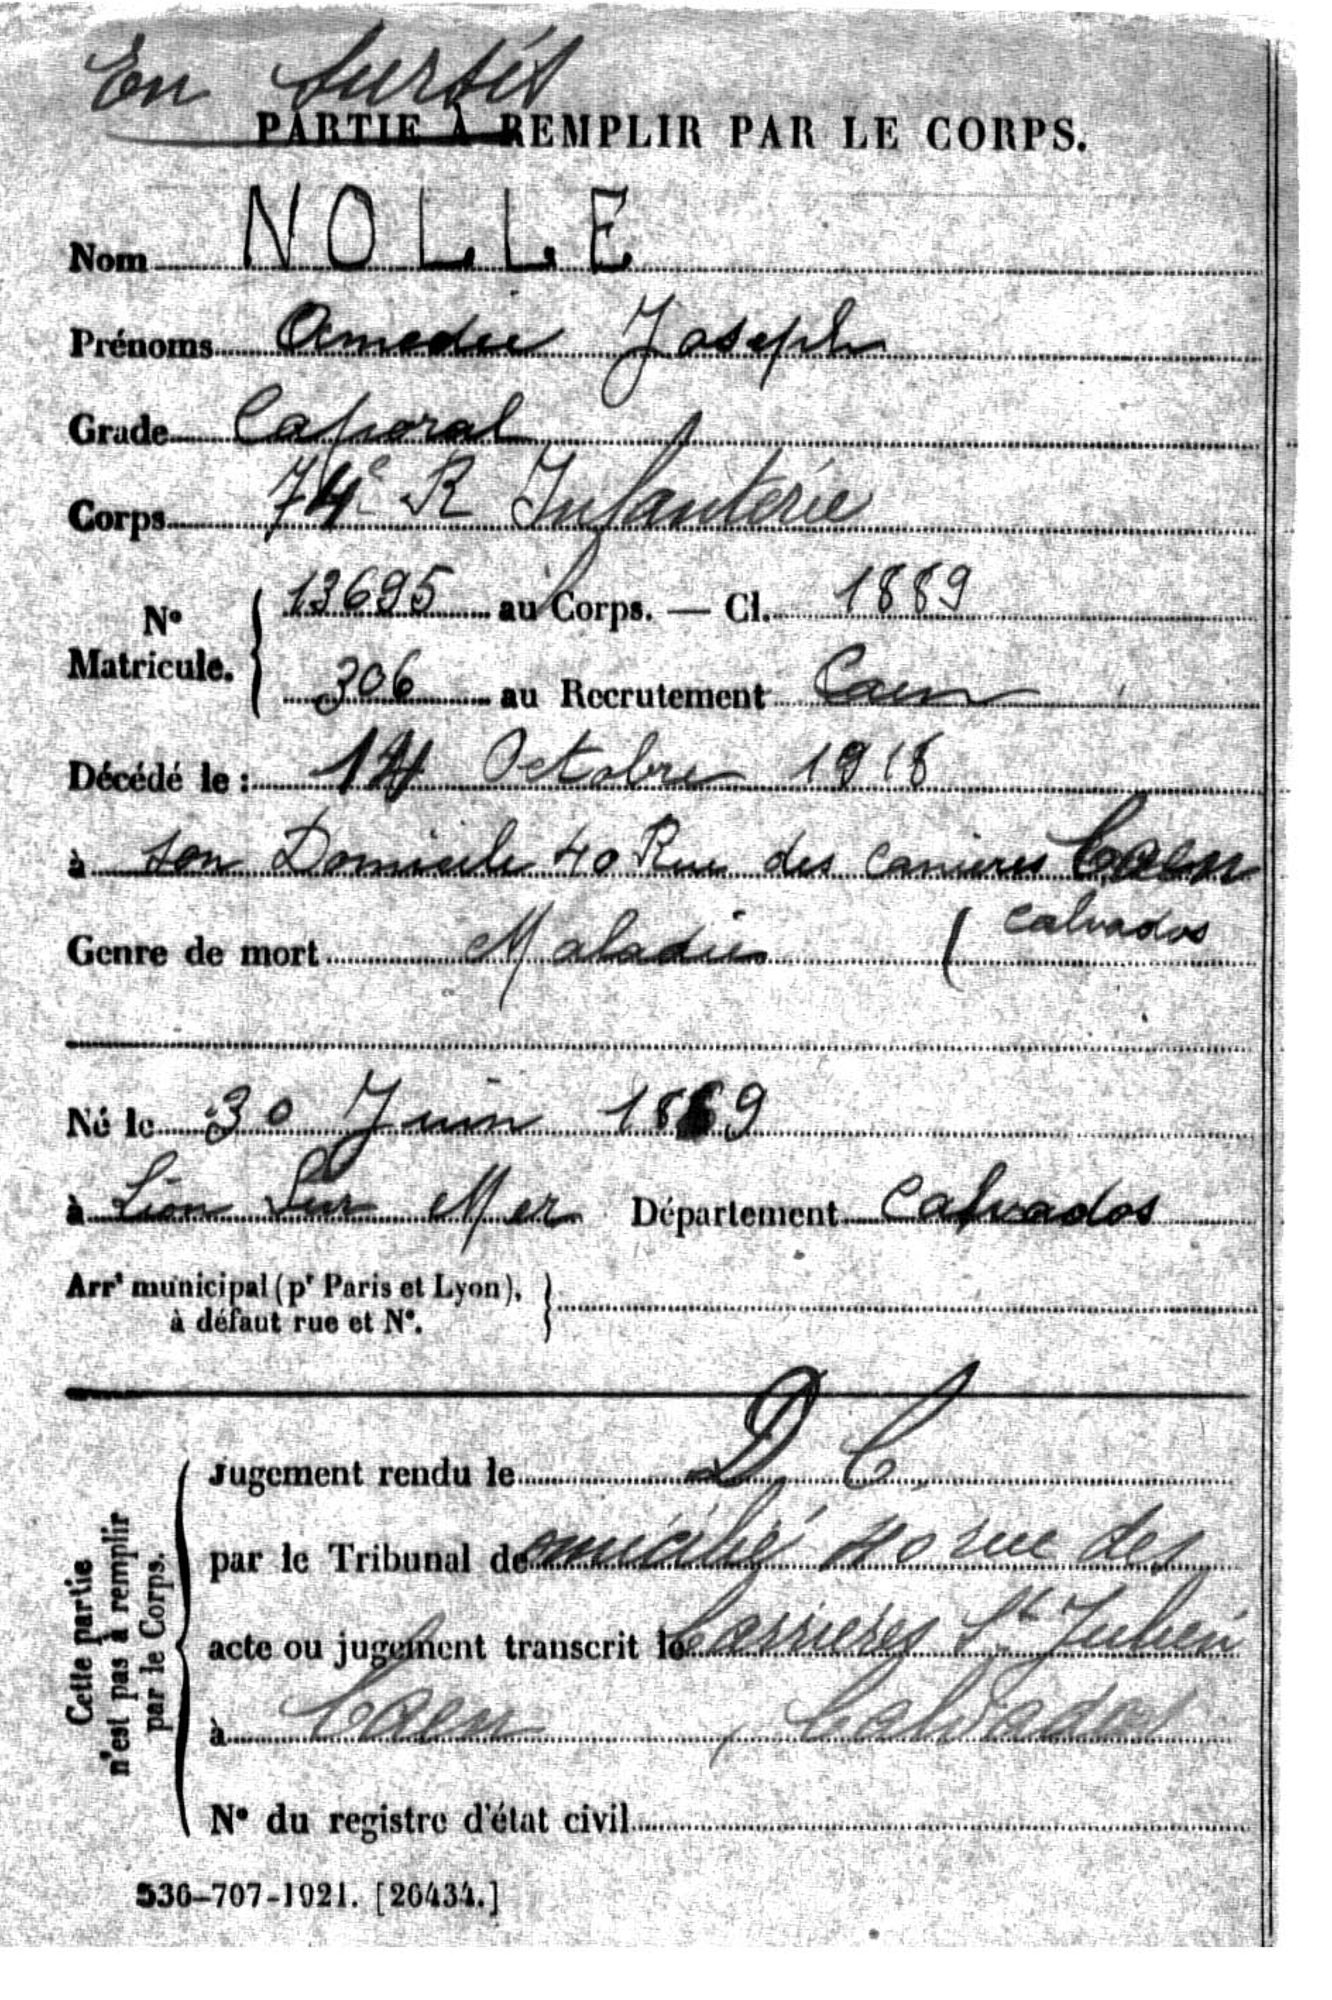 En Sursis
PARTIE À REMPLIR PAR LE CORPS.
Nom NOLLE
Prénoms Amedee Joseph
Grade Caporal
Corps 74e R Infanterie
No Matricule. { 13695 au Corps. — Cl. 1889
306 au Recrutement Caen
Décédé le : 14 Octobre 1918
à son Domicile 40 Rue des Carrieres Caen
Genre de mort Maladie ( Calvados
Né le 30 Juin 1869
à Lion Sur Mer Département Calvados
Arrt municipal (pr Paris et Lyon), }
à défaut rue et No.
Cette partie
n'est pas à remplir
par le Corps.
Jugement rendu le D C
par le Tribunal de omicilié 40 rue des
acte ou jugement transcrit le Carrieres St Julien
à Caen, Calvados
No du registre d'état civil
536-707-1921. [26434.]